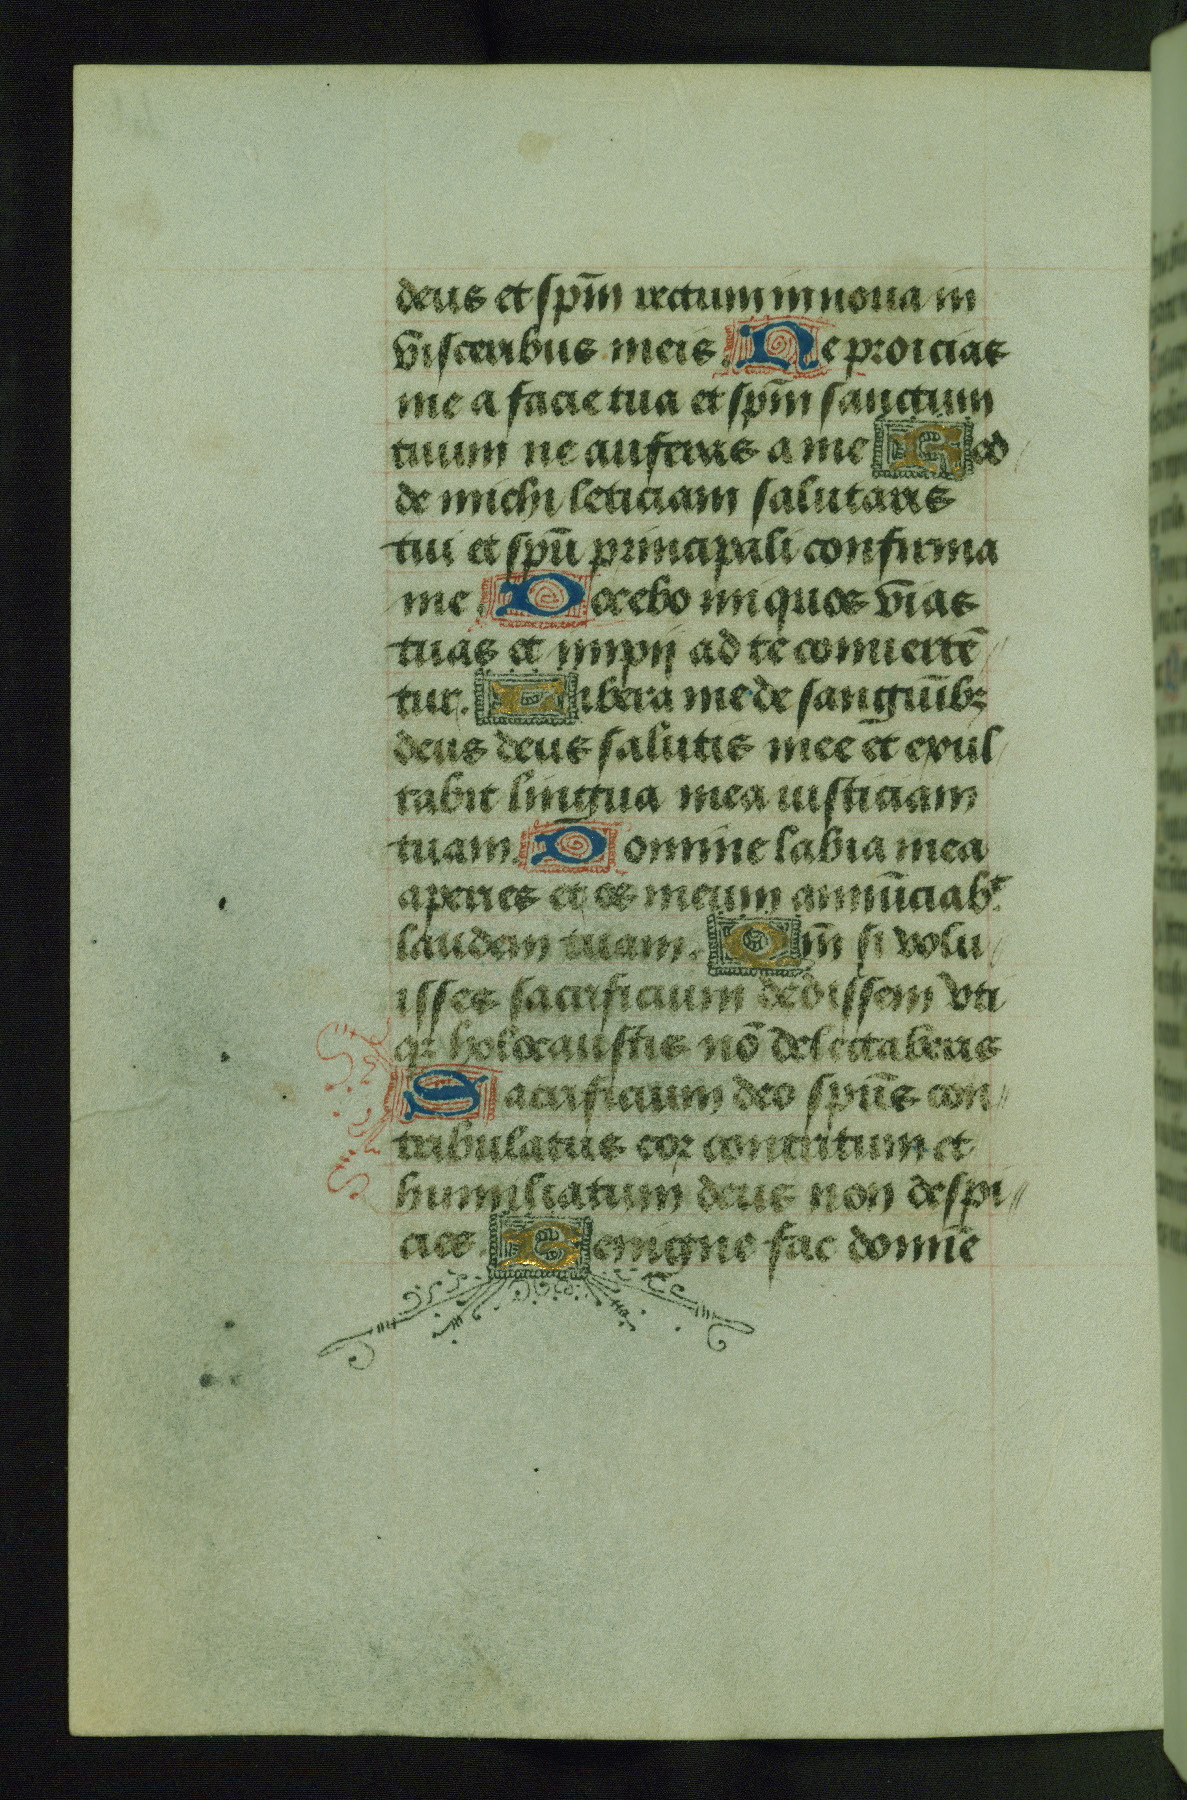 deus et sp̄m rectum innoua in
visceribus meis. Ne proicias
me a facie tua et sp̄m sanctum
tuum ne auferas a me Red
de michi leticiam salutaris
tui et spū principali confirma
me. Docebo iniquos vias
tuas et impij ad te conuertē
tur. Libera me de sanguinībꝫ
deus deus salutis mee et exul
tabit lingua mea iusticiam
tuam. Domine labia mea
aperies et os meum annūciabᵗ
laudem tuam. Qm̄ si volu
isses sacrificium dedissem vti
qꝫ holocaustis nō delectaberis
Sacrificium deo spūs con
tribulatus cor contritum et
humiliatum deus non despi
cies. Benigne fac domine